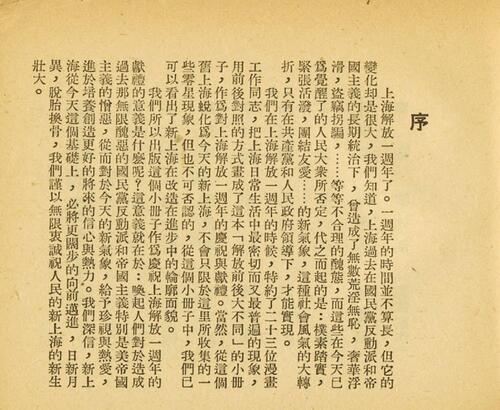 序
上海解放一週年了。一週年的時間並不算長，但它的
變化却是很大，我們知道，上海過去在國民黨反動派和帝
國主義的長期統治下，曾造成了無數荒淫無恥，奢華浮
滑，盜竊拐騙，……等等不合理的醜態，而這些在今天已
爲覺醒了的人民大衆所否定，代之而起的是：樸素踏實，
緊張活潑，團結友愛……的新氣象，這種社會風氣的大轉
折，只有在共產黨和人民政府領導下，才能實現。
我們在上海解放一週年的時候，特約了二十三位漫畫
工作同志，把上海日常生活中最密切而又最普遍的現象，
用前後對照的方式畫成了這本「解放前後大不同」的小册
子，作爲對上海解放一週年的慶祝與獻禮。當然，從這個
舊上海蛻化爲今天的新上海，不會只限於這裡所收集的一
些零星現象，但也不可否認的，從這個小册子中，我們已
可以看出了新上海在改造在進步中的輪廓面貌。
我們所以出版這個小册子作爲慶祝上海解放一週年的
獻禮的意義是什麽呢？這意義就在於：喚起人們對於造成
過去那無限醜惡的國民黨反動派和帝國主義特別是美帝國
主義的憎惡，從而對於今天的新氣象，給予珍視與熱愛，
進於培養創造更好的將來的信心與熱力。我們深信，新上
海從今天這個基礎上，必將更闊步的向前邁進，日新月
異，脫胎換骨，我們謹以無限衷誠視人民的新上海的新生
壯大。